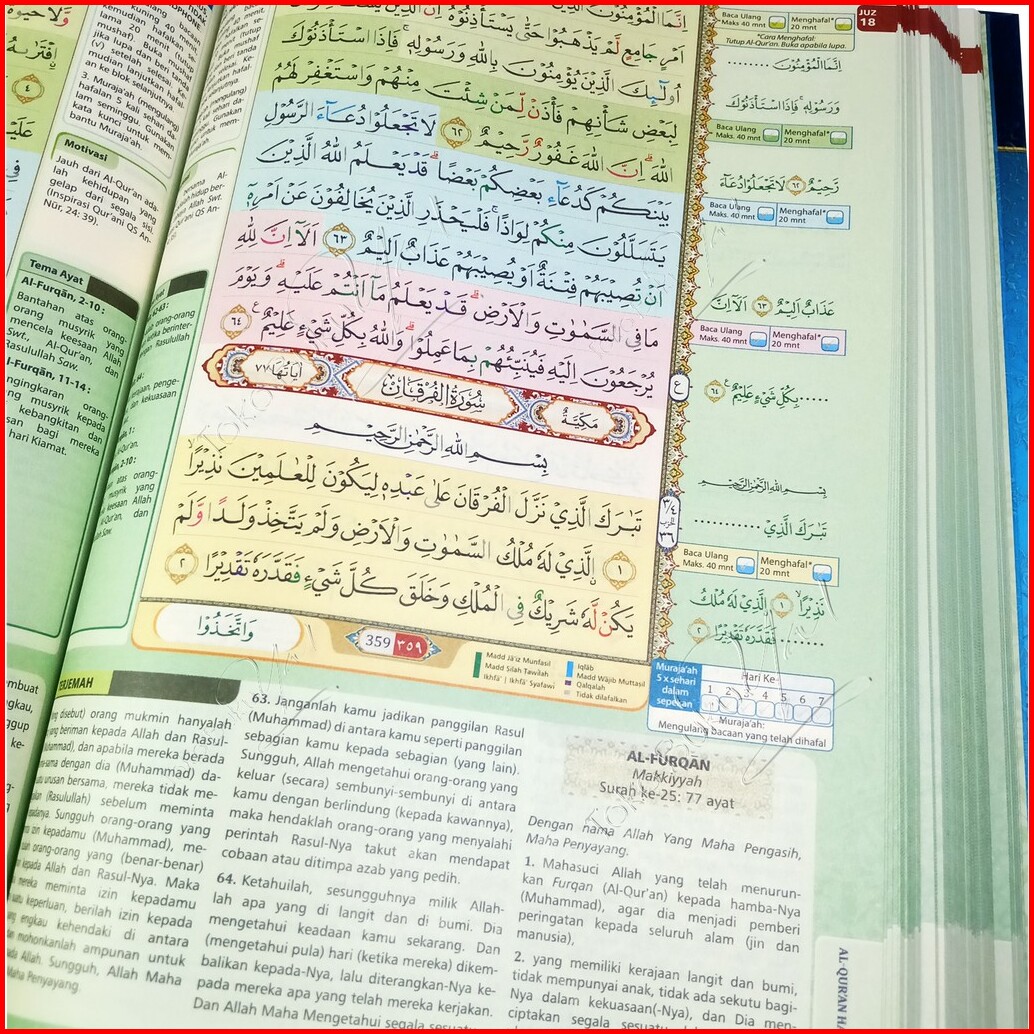 kuning 40 bacaan
kemudian hafalkan se-
lama 20 menit (tutup
mushaf). Buka mushaf
jika lupa dan beri tanda
(v) setelah selesai. Ke-
mudian lanjutkan hafal-
an ke blok selanjutnya.
3. Muraja'ah (mengulang)
hafalan 5 kali sehari da-
lam seminggu. Gunakan
kata kunci untuk mem-
bantu Muraja'ah.
Motivasi
Jauh dari Al-Qur'an ada-
lah kehidupan yang
gelap dari segala sisi.
(Inspirasi Qur'ani QS An-
Nūr, 24: 39).
Tema Ayat
Al-Furqān, 2-10 :
Bantahan atas orang-
orang musyrik yang
mencela keesaan Allah
Swt., Al-Qur'an, dan
Rasulullah Saw.
l-Furqān, 11-14 :
ngingkaran orang-
ng musyrik kepada
kebangkitan dan
san bagi mereka
hari Kiamat.
JUZ
18
اِنَّمَا الْمُؤْمِنُوْنَ الَّذِيْنَ
اَمْرٍ جَامِعٍ لَّمْ يَذْهَبُوْا حَتّٰى يَسْتَأْذِنُوْهُ ۗاِنَّ الَّذِيْنَ يَسْتَأْذِنُوْنَكَ
اُولٰۤىِٕكَ الَّذِيْنَ يُؤْمِنُوْنَ بِاللّٰهِ وَرَسُوْلِهٖ ۚفَاِذَا اسْتَأْذَنُوْكَ
لِبَعْضِ شَأْنِهِمْ فَأْذَنْ لِّمَنْ شِئْتَ مِنْهُمْ وَاسْتَغْفِرْ لَهُمُ
اللّٰهَ ۗاِنَّ اللّٰهَ غَفُوْرٌ رَّحِيْمٌ ٦٢ لَا تَجْعَلُوْا دُعَاۤءَ الرَّسُوْلِ
بَيْنَكُمْ كَدُعَاۤءِ بَعْضِكُمْ بَعْضًا ۗقَدْ يَعْلَمُ اللّٰهُ الَّذِيْنَ
يَتَسَلَّلُوْنَ مِنْكُمْ لِوَاذًا ۚفَلْيَحْذَرِ الَّذِيْنَ يُخَالِفُوْنَ عَنْ اَمْرِهٖٓ
اَنْ تُصِيْبَهُمْ فِتْنَةٌ اَوْ يُصِيْبَهُمْ عَذَابٌ اَلِيْمٌ ٦٣ اَلَآ اِنَّ لِلّٰهِ
مَا فِى السَّمٰوٰتِ وَالْاَرْضِۗ قَدْ يَعْلَمُ مَآ اَنْتُمْ عَلَيْهِۗ وَيَوْمَ
يُرْجَعُوْنَ اِلَيْهِ فَيُنَبِّئُهُمْ بِمَا عَمِلُوْاۗ وَاللّٰهُ بِكُلِّ شَيْءٍ عَلِيْمٌ ࣖ ٦٤
مَكِّيَّةٌ سُوْرَةُ الْفُرْقَانِ اٰيَاتُهَا ٧٧
بِسْمِ اللّٰهِ الرَّحْمٰنِ الرَّحِيْمِ
تَبٰرَكَ الَّذِيْ نَزَّلَ الْفُرْقَانَ عَلٰى عَبْدِهٖ لِيَكُوْنَ لِلْعٰلَمِيْنَ نَذِيْرًاۙ
١ ۨالَّذِيْ لَهٗ مُلْكُ السَّمٰوٰتِ وَالْاَرْضِ وَلَمْ يَتَّخِذْ وَلَدًا وَّلَمْ
يَكُنْ لَّهٗ شَرِيْكٌ فِى الْمُلْكِ وَخَلَقَ كُلَّ شَيْءٍ فَقَدَّرَهٗ تَقْدِيْرًا ٢
وَاتَّخَذُوْا
359 ٣٥٩
Madd Jā'iz Munfasil
Madd Silah Tawīlah
Ikhfā' | Ikhfā' Syafawi
Iqlāb
Madd Wājib Muttasil
Qalqalah
Tidak dilafalkan
Baca Ulang
Maks 40 mnt
Menghafal*
20 mnt
*Cara Menghafal:
Tutup Al-Qur'an. Buka apabila lupa.
اِنَّمَا الْمُؤْمِنُوْنَ ........
وَرَسُوْلِهٖ ۚفَاِذَا اسْتَأْذَنُوْكَ
Baca Ulang
Maks. 40 mnt
Menghafal*
20 mnt
رَّحِيْمٌ ٦٢ لَا تَجْعَلُوْا دُعَاۤءَ
Baca Ulang
Maks. 40 mnt
Menghafal*
20 mnt
عَذَابٌ اَلِيْمٌ ٦٣ اَلَآ اِنَّ
Baca Ulang
Maks. 40 mnt
Menghafal*
20 mnt
ع
.....بِكُلِّ شَيْءٍ عَلِيْمٌ ٦٤
بِسْمِ اللّٰهِ الرَّحْمٰنِ الرَّحِيْمِ
٣/٤
الحزب
٣٦
تَبٰرَكَ الَّذِيْ ..........
Baca Ulang
Maks. 40 mnt
Menghafal*
20 mnt
نَذِيْرًاۙ ١ ۨالَّذِيْ لَهٗ مُلْكُ
...... فَقَدَّرَهٗ تَقْدِيْرًا ٢
Muraja'ah
5 x sehari
dalam
sepekan
Hari Ke-
1 2 3 4 5 6 7
Muraja'ah:
Mengulang bacaan yang telah dihafal
TERJEMAH
disebut) orang mukmin hanyalah
yang beriman kepada Allah dan Rasul-
(Muhammad), dan apabila mereka berada
bersama dengan dia (Muhammad) da-
urusan bersama, mereka tidak me-
(Rasulullah) sebelum meminta
Sungguh orang-orang yang
izin kepadamu (Muhammad), me-
orang-orang yang (benar-benar)
kepada Allah dan Rasul-Nya. Maka
mereka meminta izin kepadamu
keperluan, berilah izin kepada
engkau kehendaki di antara
mohonkanlah ampunan untuk
Allah. Sungguh, Allah Maha
Maha Penyayang.
63. Janganlah kamu jadikan panggilan Rasul
(Muhammad) di antara kamu seperti panggilan
sebagian kamu kepada sebagian (yang lain).
Sungguh, Allah mengetahui orang-orang yang
keluar (secara) sembunyi-sembunyi di antara
kamu dengan berlindung (kepada kawannya),
maka hendaklah orang-orang yang menyalahi
perintah Rasul-Nya takut akan mendapat
cobaan atau ditimpa azab yang pedih.
64. Ketahuilah, sesungguhnya milik Allah-
lah apa yang di langit dan di bumi. Dia
mengetahui keadaan kamu sekarang. Dan
(mengetahui pula) hari (ketika mereka) dikem-
balikan kepada-Nya, lalu diterangkan-Nya ke-
pada mereka apa yang telah mereka kerjakan.
Dan Allah Maha Mengetahui segala sesuatu.
AL-FURQĀN
Makkiyyah
Surah ke-25: 77 ayat
Dengan nama Allah Yang Maha Pengasih,
Maha Penyayang.
1. Mahasuci Allah yang telah menurun-
kan Furqan (Al-Qur'an) kepada hamba-Nya
(Muhammad), agar dia menjadi pemberi
peringatan kepada seluruh alam (jin dan
manusia),
2. yang memiliki kerajaan langit dan bumi,
tidak mempunyai anak, tidak ada sekutu bagi-
Nya dalam kekuasaan(-Nya), dan Dia men-
ciptakan segala sesuatu
AL-QURAN HA